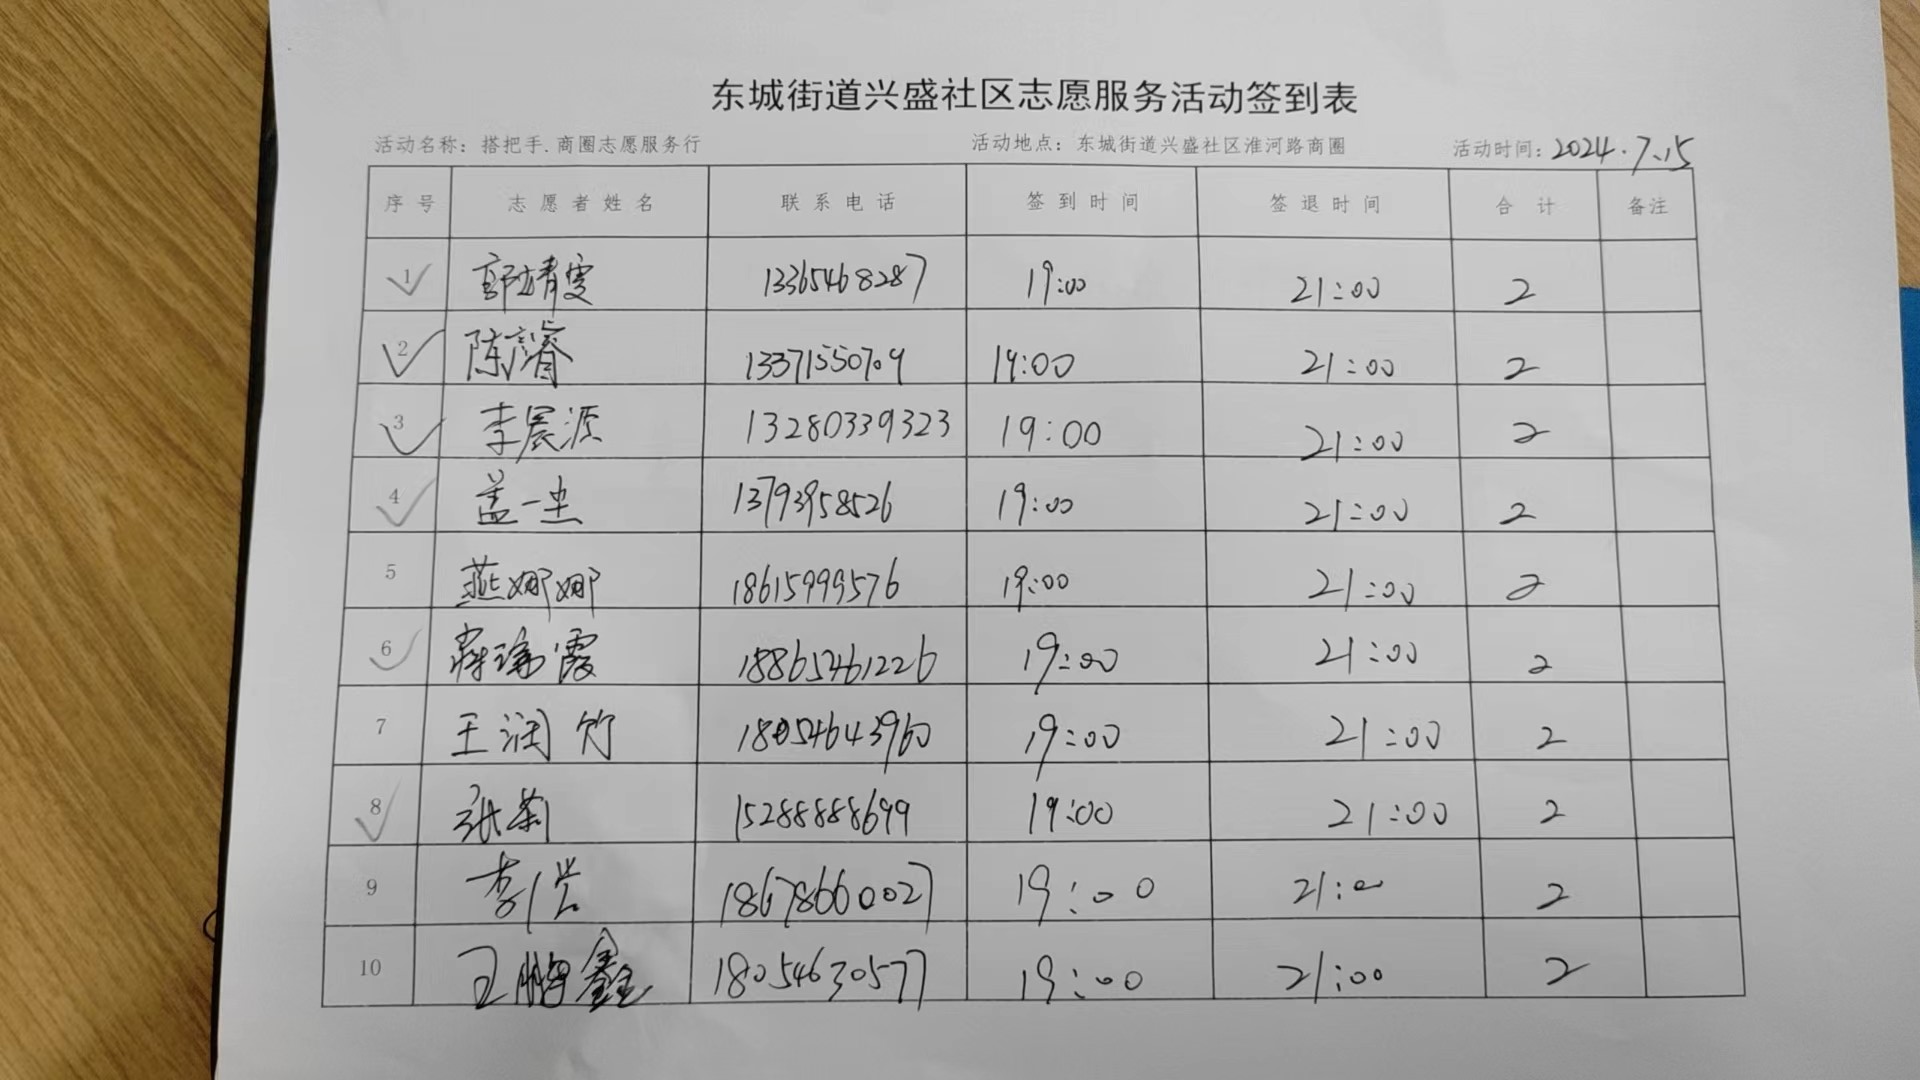 东城街道兴盛社区志愿服务活动签到表
活动名称：搭把手.商圈志愿服务行 活动地点：东城街道兴盛社区淮河路商圈 活动时间：2024.7.15
序号 志愿者姓名 联系电话 签到时间 签退时间 合计 备注
1 郭靖雯 13365468287 19:00 21:00 2
2 陈彦睿 13371550709 19:00 21:00 2
3 李宸源 13280339323 19:00 21:00 2
4 盖一 13793958526 19:00 21:00 2
5 燕娜娜 18615999576 19:00 21:00 2
6 蒋瑞霞 18865461226 19:00 21:00 2
7 王润竹 18054643960 19:00 21:00 2
8 张莉 15288888699 19:00 21:00 2
9 李 18678660027 19:00 21:00 2
10 王鹏鑫 18054630577 19:00 21:00 2